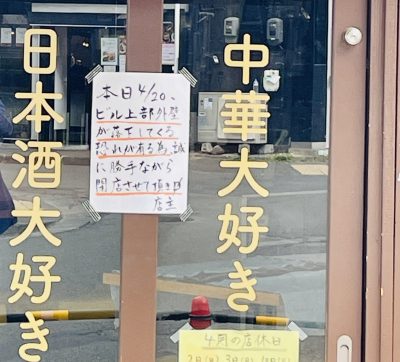 日本酒大好き
本日4/20、
ビル上部外壁
が落下してくる
恐れが有る為、誠
に勝手ながら
閉店させて頂きます
店主
中華大好き
4月の店休日
2日(月)3日(火)